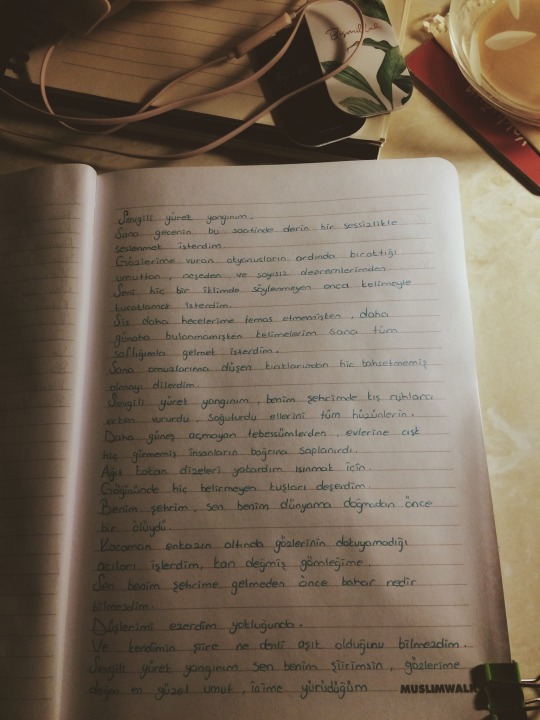 Bismillah
Sevgili yürek yangınım.
Sana gecenin bu saatinde derin bir sessizlikle
seslenmek isterdim.
Gözlerime vuran okyanusların ardında bıraktığı
umuttan, neşeden ve sayısız depremlerimden
Seni hiç bir iklimde söylenmeyen onca kelimeyle
kucaklamak isterdim.
Sis daha hecelerime temas etmemişken, daha
günaha bulanmamışken kelimelerim sana tüm
saflığımla gelmek isterdim.
Sana omuzlarıma düşen kırıklarından hiç bahsetmemiş
olmayı dilerdim.
Sevgili yürek yangınım, benim şehrimde kış
erken vururdu, soğuturdu ellerini tüm hüzünlerin.
Daha güneş açmayan tebessümlerden, evlerine ışık
hiç girmemiş insanların bağrına saplanırdı.
Ağıt kokan dizeleri yakardım ısınmak için.
Göğünde hiç belirmeyen kuşları deşerdim.
Benim şehrim, sen benim dünyama doğmadan önce
bir ölüydü.
Kocaman enkazın altında gözlerinin dokuyamadığı
acıları işlerdim, kan değmiş gömleğime.
Sen benim şehrime gelmeden önce bahar nedir
bilmezdim.
Düşlerimi ezerdim yokluğunda.
Ve kendimin şiire ne denli aşık olduğunu bilmezdim.
Sevgili yürek yangınım sen benim şiirimsin, gözlerime
değen en güzel umut, içime yürüdüğüm
MUSLIMWALK